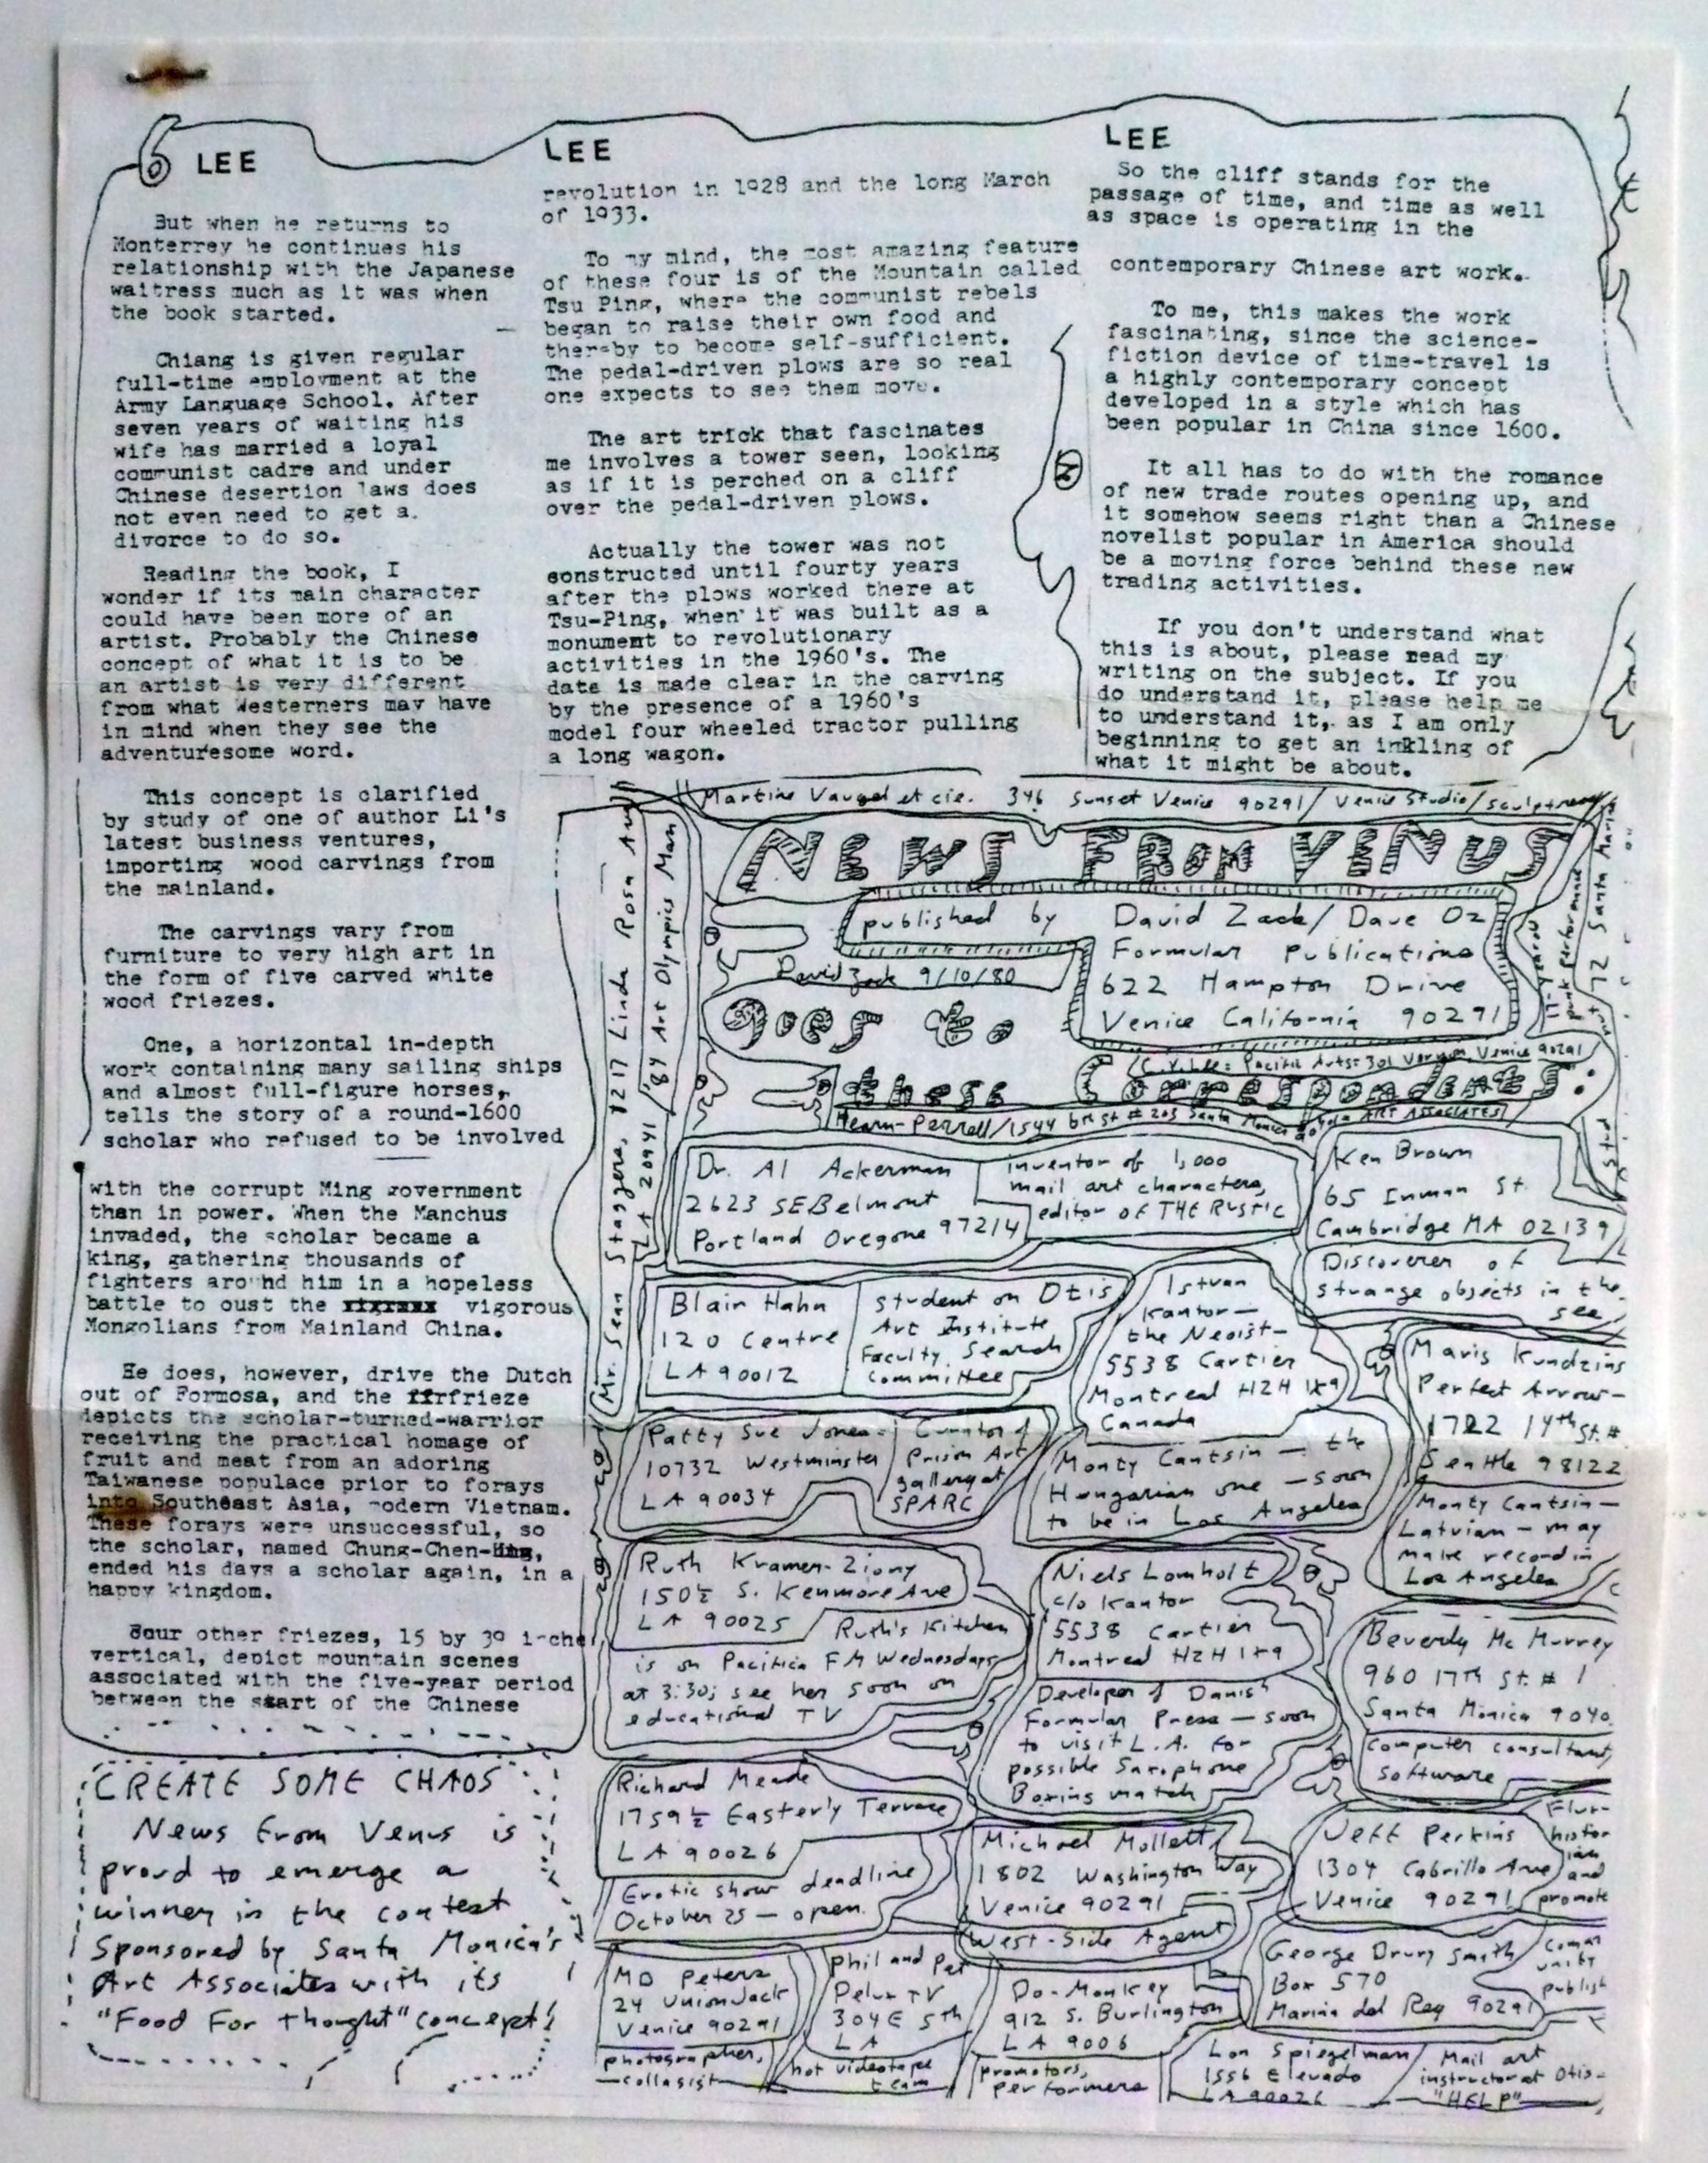 6 LEE
But when he returns to
Monterrey he continues his
relationship with the Japanese
waitress much as it was when
the book started.
Chiang is given regular
full-time employment at the
Army Language School. After
seven years of waiting his
wife has married a loyal
communist cadre and under
Chinese desertion laws does
not even need to get a
divorce to do so.
Reading the book, I
wonder if its main character
could have been more of an
artist. Probably the Chinese
concept of what it is to be
an artist is very different
from what Westerners may have
in mind when they see the
adventuresome word.
This concept is clarified
by study of one of author Li's
latest business ventures,
importing wood carvings from
the mainland.
The carvings vary from
furniture to very high art in
the form of five carved white
wood friezes.
One, a horizontal in-depth
work containing many sailing ships
and almost full-figure horses,
tells the story of a round-1600
scholar who refused to be involved
with the corrupt Ming government
than in power. When the Manchus
invaded, the scholar became a
king, gathering thousands of
fighters around him in a hopeless
battle to oust the vigorous
Mongolians from Mainland China.
He does, however, drive the Dutch
out of Formosa, and the frieze
depicts the scholar-turned-warrior
receiving the practical homage of
fruit and meat from an adoring
Taiwanese populace prior to forays
into Southeast Asia, modern Vietnam.
These forays were unsuccessful, so
the scholar, named Chung-Chen-
ended his days a scholar again, in a
happy kingdom.
Four other friezes, 15 by 30 inche
vertical, depict mountain scenes
associated with the five-year period
between the start of the Chinese
LEE
revolution in 1928 and the long March
of 1933.
To my mind, the most amazing feature
of these four is of the Mountain called
Tsu Ping, where the communist rebels
began to raise their own food and
thereby to become self-sufficient.
The pedal-driven plows are so real
one expects to see them move.
The art trick that fascinates
me involves a tower seen, looking
as if it is perched on a cliff
over the pedal-driven plows.
Actually the tower was not
constructed until fourty years
after the plows worked there at
Tsu-Ping, when it was built as a
monument to revolutionary
activities in the 1960's. The
date is made clear in the carving
by the presence of a 1960's
model four wheeled tractor pulling
a long wagon.
LEE
So the cliff stands for the
passage of time, and time as well
as space is operating in the
contemporary Chinese art work.
To me, this makes the work
fascinating, since the science-
fiction device of time-travel is
a highly contemporary concept
developed in a style which has
been popular in China since 1600.
It all has to do with the romance
of new trade routes opening up, and
it somehow seems right than a Chinese
novelist popular in America should
be a moving force behind these new
trading activities.
If you don't understand what
this is about, please read my
writing on the subject. If you
do understand it, please help me
to understand it, as I am only
beginning to get an inkling of
what it might be about.
CREATE SOME CHAOS
News from Venus is
proud to emerge a
winner in the contest
sponsored by Santa Monica's
Art Associates with its
"Food For thought" concept!
Martine Vaugel et cie. 346 Sunset Venice 90291/ Venice Studio/
Mr. Sean Staggers, 1217 Linda Rosa Ave
LA 90041 / '84 Art Olympics Man
NEWS FROM VENUS
published by David Zack/ Dave Oz
Formular Publications
622 Hampton Drive
Venice California 90291
David Zack 9/10/80
goes to
these Correspondents:
17-year old
punk performance
72 Santa
Hearn-Perrell/1544 6th St # 203 Santa Monica
ART ASSOCIATES
Dr. Al Ackerman
2623 SE Belmont
Portland Oregone 97214
inventor of 1,000
mail art characters,
editor of THE RUSTIC
Ken Brown
65 Inman St
Cambridge MA 02139
Discoverer of
strange objects in the
sea
Blair Hahn
120 Centre
LA 90012
student on Otis
Art Institute
Faculty Search
Committee
Istvan
Kantor—
the Neoist—
5538 Cartier
Montreal H2H 1X9
Canada
Monty Cantsin — the
Hungarian one — soon
to be in Los Angeles
Maris Kundzins
Perfect Arrow—
1722 14th St. #
Seattle 98122
Monty Cantsin—
Latvian — may
make record in
Los Angeles
Patty Sue Jones
10732 Westminster
LA 90034
Curator of
Prison Art
gallery at
SPARC
Ruth Kramer-Ziony
150½ S. Kenmore Ave
LA 90025
Ruth's Kitchen
is on Pacifica FM Wednesdays
at 3:30; see her soon on
educational TV
Niels Lomholt
c/o Kantor
5538 Cartier
Montreal H2H 1X9
Developer of Danish
Formular Press — soon
to visit L.A. for
possible Saxophone
Boxing match
Beverly Mc Murrey
960 17th St. # 1
Santa Monica 9040
computer consultant,
software
Richard Meade
1759½ Easterly Terrace
LA 90026
Erotic show deadline
October 25 — open
Michael Mollett
1802 Washington Way
Venice 90291
West-Side Agent
Jeff Perkins
1304 Cabrillo Ave
Venice 90291
and
promote
MD Peters
24 Union Jack
Venice 90291
photographer,
collagist
Phil and Pat
Pelux TV
304 E 5th
LA
hot videotape
team
Do-Monkey
912 S. Burlington
LA 9006
promotors,
performers
George Drury Smith
Box 570
Marina del Rey 90291
publish
Lon Spiegelman
1556 Elevado
LA 90026
Mail art
instructor at Otis-
"HELP"